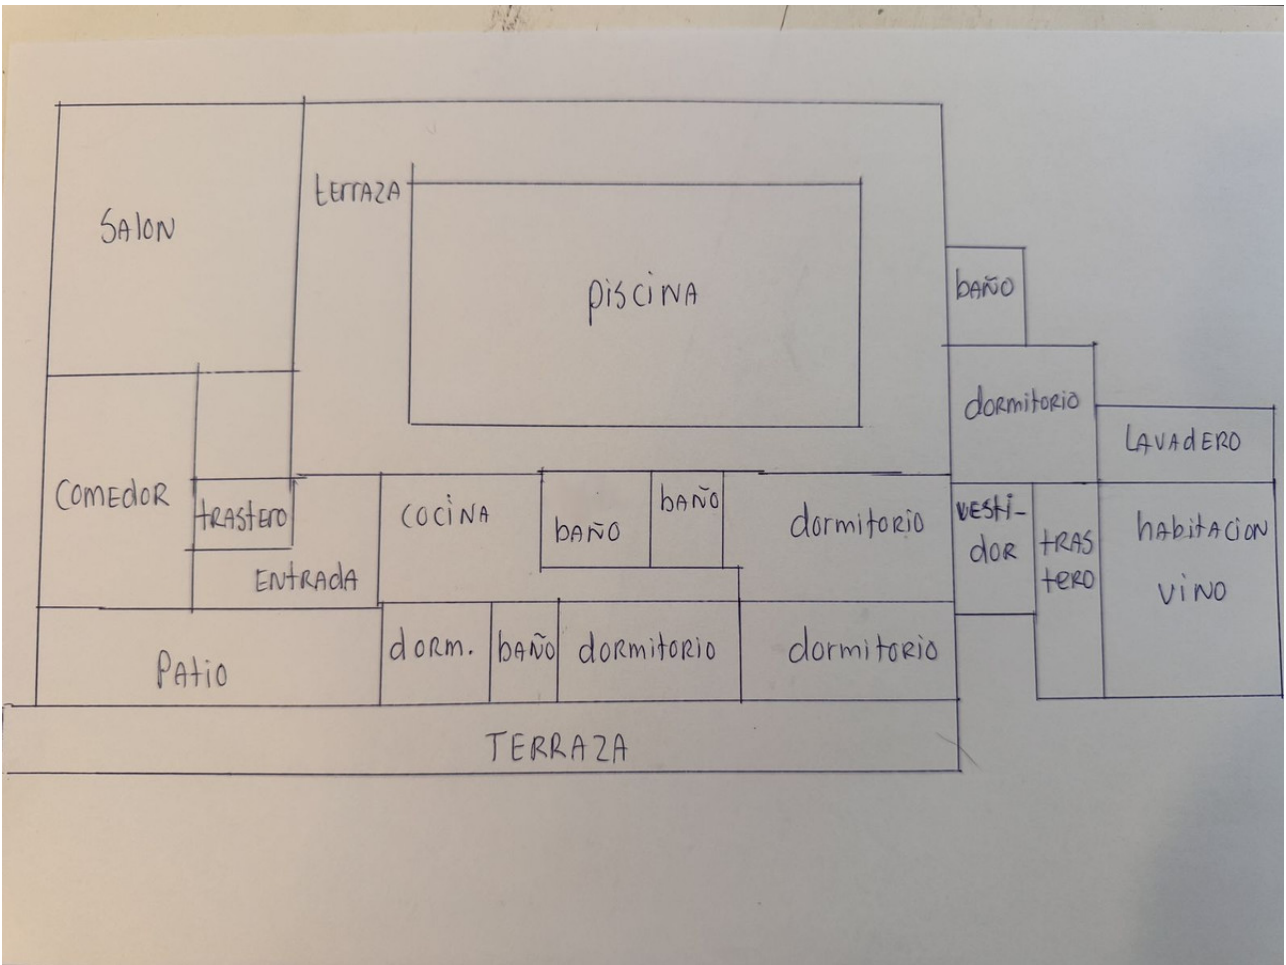 terraza
SAlON
piscina
baño
dormitorio
LAVAdERO
COMEdOR
trastero
COCiNA
baño
baño
dormitorio
VESti-
dOR
tRAS
tERO
hAbitACiON
ViNO
ENtRAdA
PAtiO
dORM.
bAÑO
dORMitORiO
dormitoRiO
TERRAZA